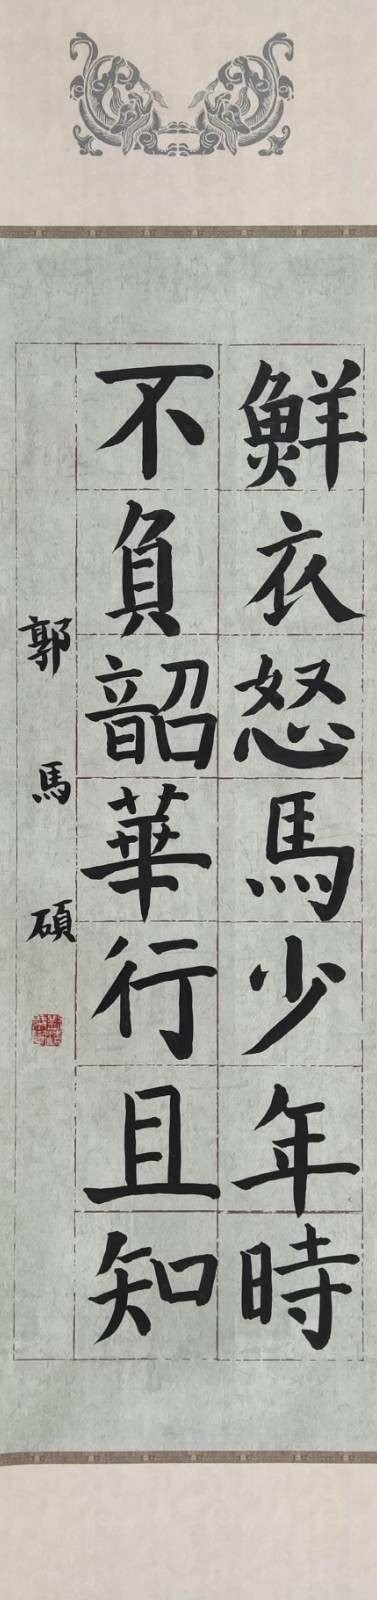 鮮衣怒馬少年時
不負韶華行且知
郭馬碩